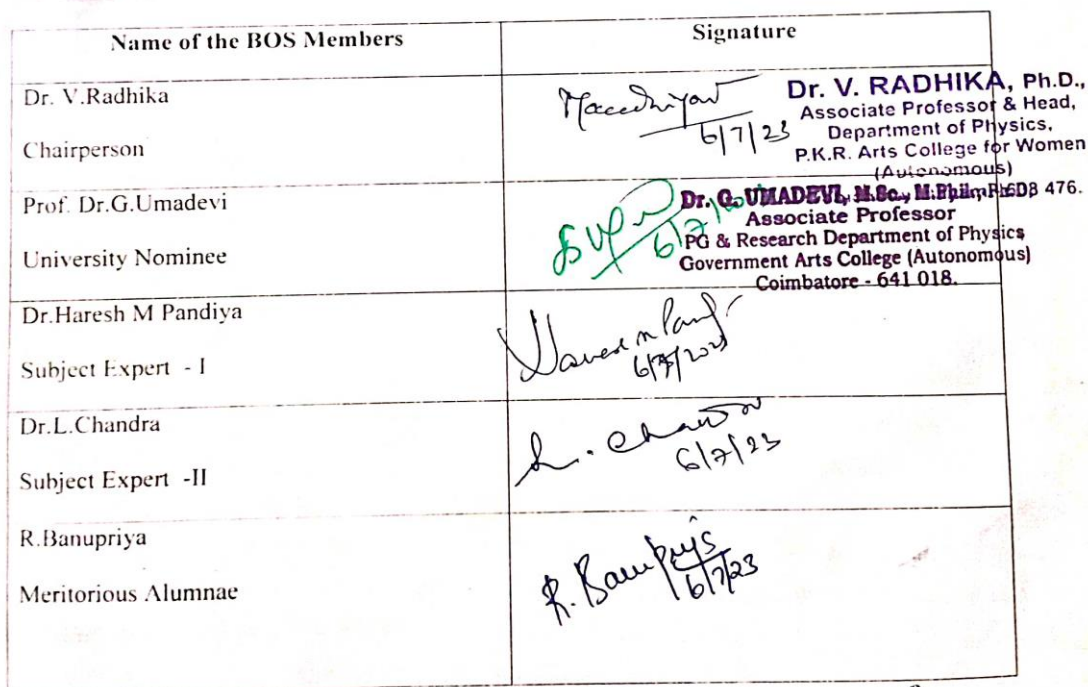 Name of the BOS Members
Signature
Dr. V.Radhika
Chairperson
6/7/23
Dr. V. RADHIKA, Ph.D.,
Associate Professor & Head,
Department of Physics,
P.K.R. Arts College for Women
(Autonomous)
476.
Prof. Dr.G.Umadevi
University Nominee
Dr. G. UMADEVI, M.Sc., M.Phil.,
Associate Professor
PG & Research Department of Physics
Government Arts College (Autonomous)
Coimbatore - 641 018.
Dr.Haresh M Pandiya
Subject Expert - I
Dr.L.Chandra
Subject Expert -II
L. Chandra
6/7/23
R.Banupriya
Meritorious Alumnae
R. Banupriya
6/7/23